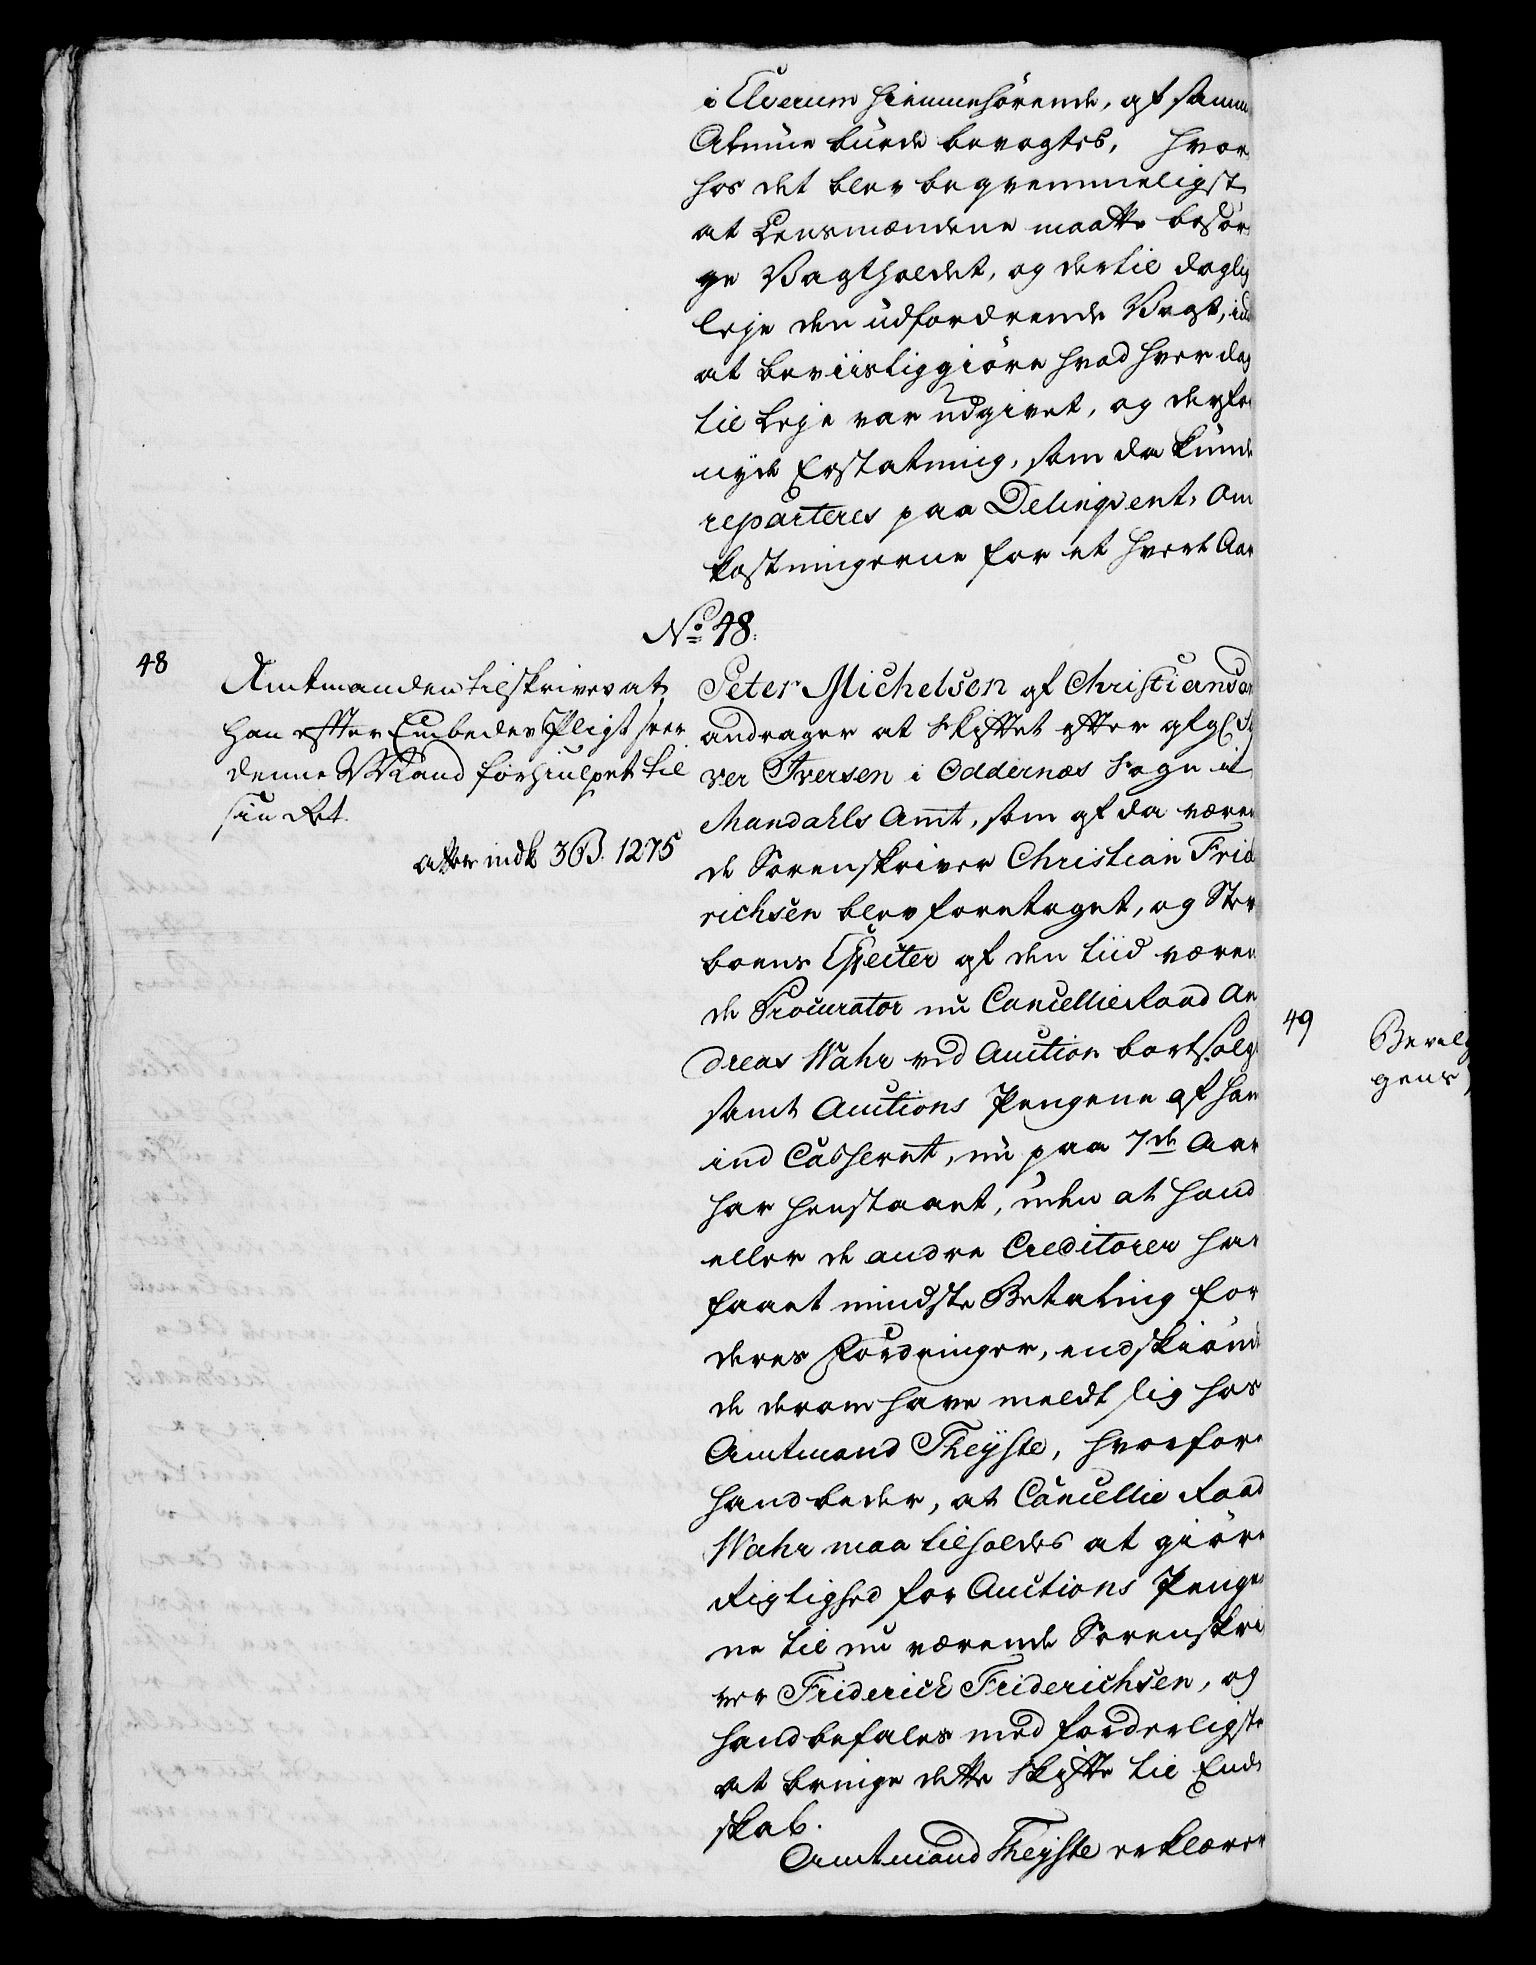 i Elverum hiemmehørende, af samme
Almue burde bevogtes, hvor
hos det blev beqvemmeligst
at Lensmændene maatte besør
ge Vagtholdet, og dertil daglig
leje den udfordrende Vagt,
at beviisliggiøre hvad hver dag
til Leje var udgivet, og derfor
nyde Erstatning, som da kunde
reparteres paa Delinqvent-Om
kostningerne for et hvert Aar
No 48.
48
Amtmanden tilskrives at
han efter Embedes Pligt seer
denne Mand forhiulpet til
sin Ret.
atter indk 3 B. 1275
Peter Michelsen af Christiansan
andrager at Skiftet efter afg
ver Iversen i Oddernæs Sogn i
Mandahls Amt, som af da væren
de Sorenskriver Christian Frid
richsen blev foretaget, og Ster
boens Effecter af den tiid væren
de Procurator nu Cancellie Raad An
dreas Wahr ved Auction bortsolgt
samt Auctions Pengene af ham
ind Casseret, nu paa 7de Aar
har henstaaet, uden at hand
eller de andre Creditorer har
faaet mindste Betaling for
deres Fordringer, endskiønt
de derom have meldt sig hos
Amtmand Theyste, hvorfore
hand beder, at Cancellie Raad
Wahr maa tilholdes at giøre
Rigtighed for Auctions Penge
ne til nu værende Sorenskri
ver Friderich Friderichsen, og
hand befales med forderligste
at bringe dette Skifte til Ende
skab.
Amtmand Theyste erklærer
49
Bevilg
gens